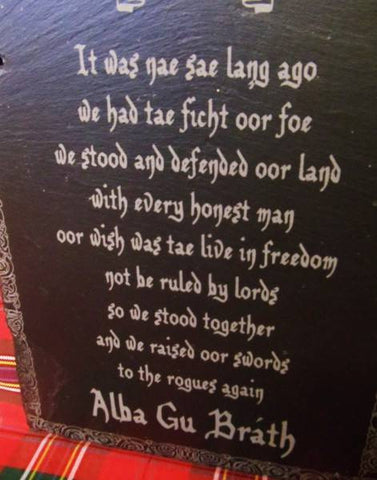 It was nae sae lang ago
we had tae ficht oor foe
we stood and defended oor land
with every honest man
oor wish was tae live in freedom
not be ruled by lords
so we stood together
and we raised oor swords
to the rogues again
Alba Gu Bráth